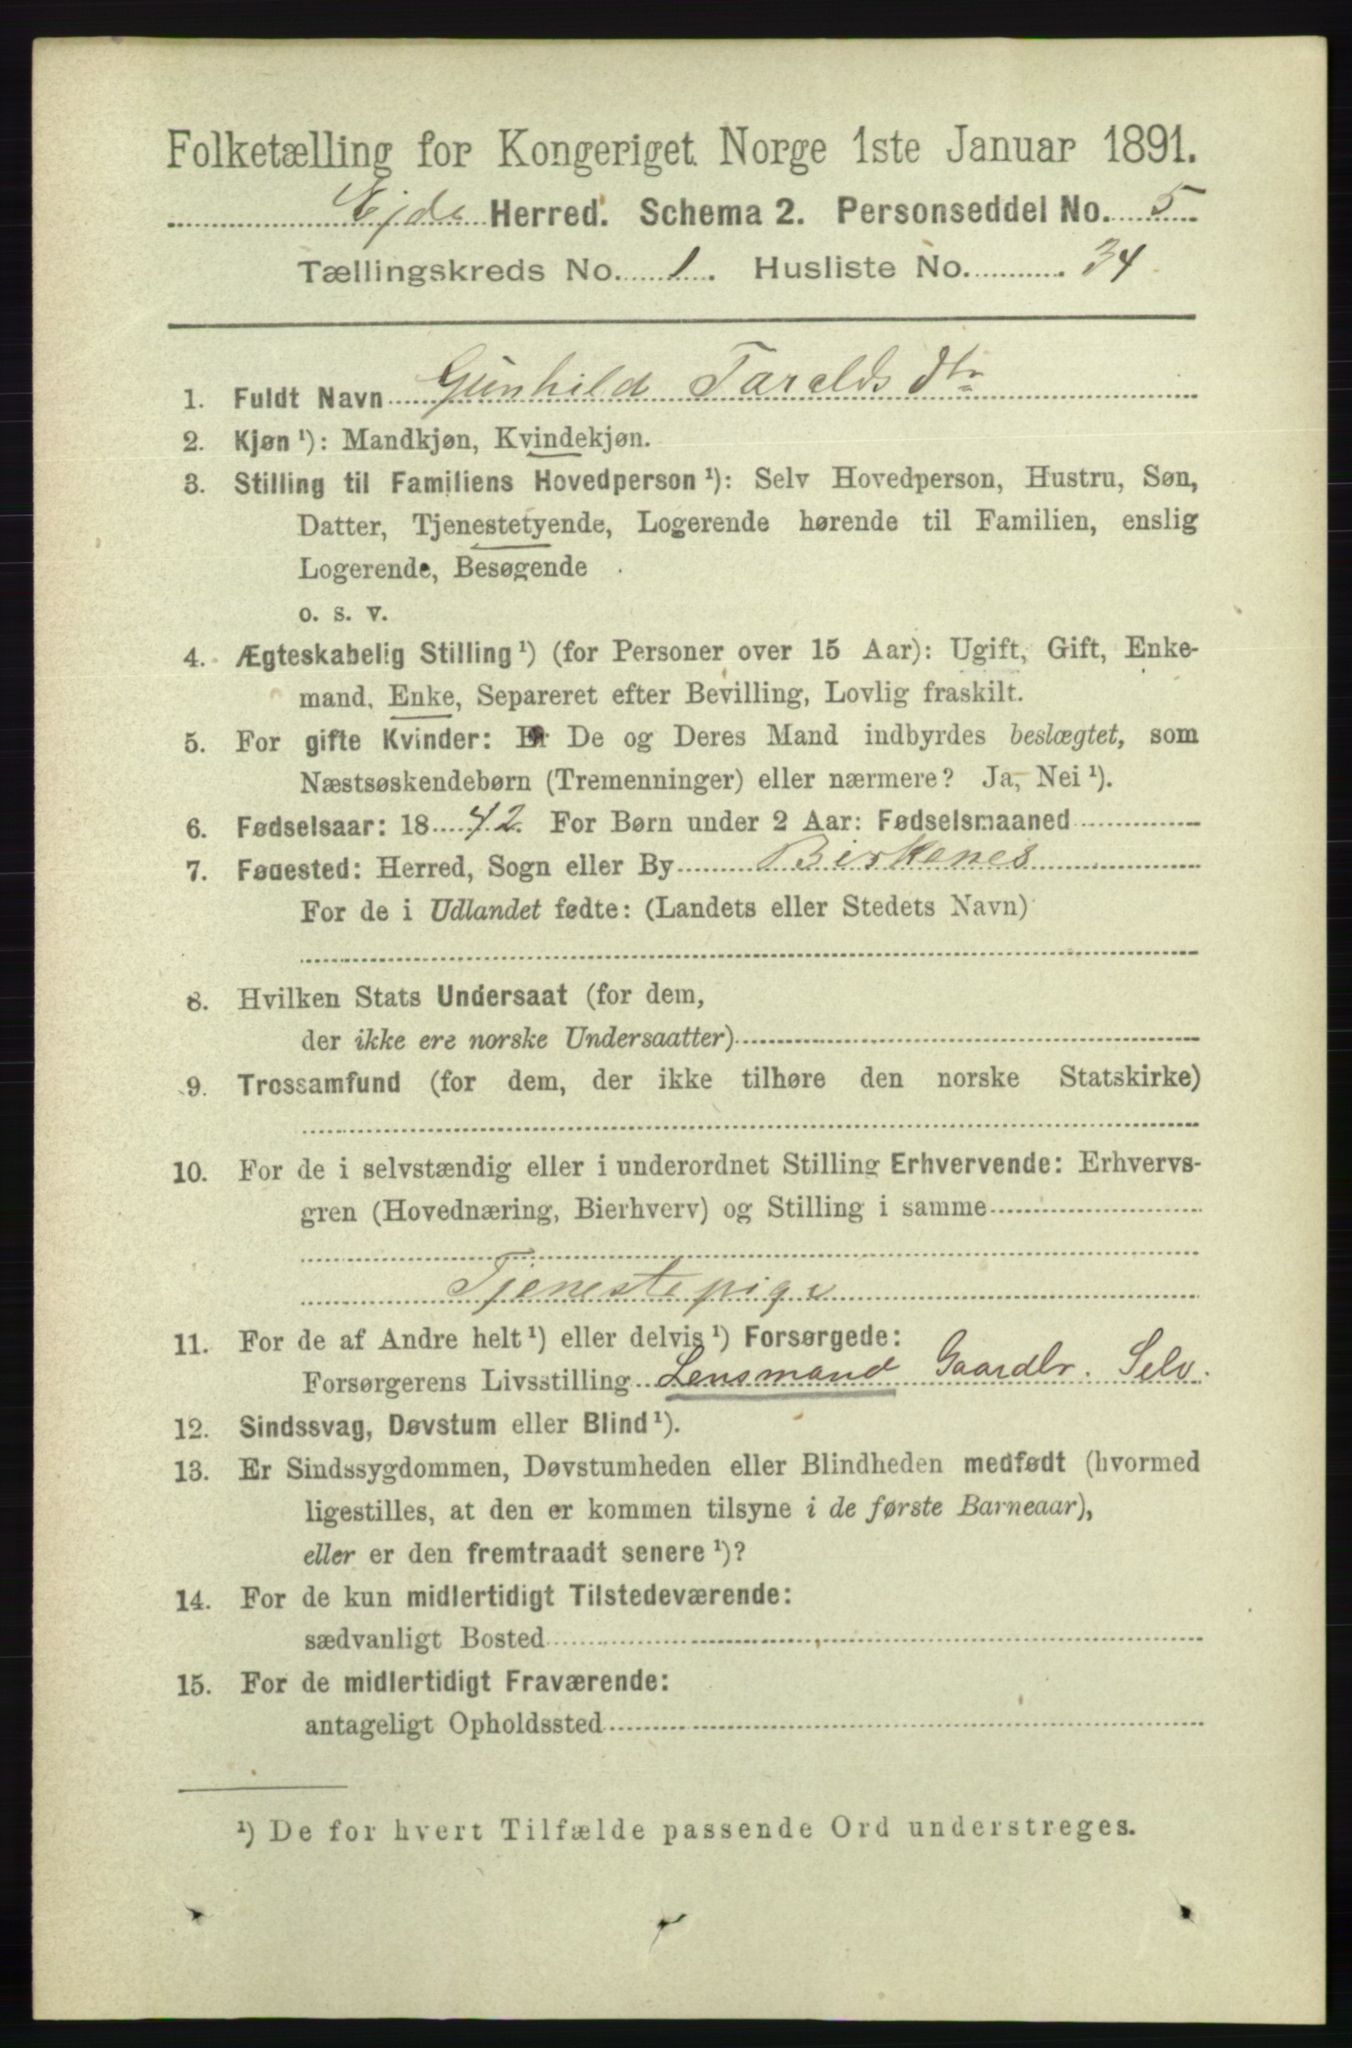 Folketælling for Kongeriget Norge 1ste Januar 1891.
Ejde Herred. Schema 2. Personseddel No. 5
Tællingskreds No. 1. Husliste No. 34
1. Fuldt Navn Gunhild Taralds dtr
2. Kjøn ¹): Mandkjøn, Kvindekjøn.
3. Stilling til Familiens Hovedperson ¹): Selv Hovedperson, Hustru, Søn,
Datter, Tjenestetyende, Logerende hørende til Familien, enslig
Logerende, Besøgende
o. s. v.
4. Ægteskabelig Stilling ¹) (for Personer over 15 Aar): Ugift, Gift, Enke-
mand, Enke, Separeret efter Bevilling, Lovlig fraskilt.
5. For gifte Kvinder: Er De og Deres Mand indbyrdes beslægtet, som
Næstsøskendebørn (Tremenninger) eller nærmere? Ja, Nei ¹).
6. Fødselsaar: 1842. For Børn under 2 Aar: Fødselsmaaned
7. Fødested: Herred, Sogn eller By Birkenes
For de i Udlandet fødte: (Landets eller Stedets Navn)
8. Hvilken Stats Undersaat (for dem,
der ikke ere norske Undersaatter)
9. Trossamfund (for dem, der ikke tilhøre den norske Statskirke)
10. For de i selvstændig eller i underordnet Stilling Erhvervende: Erhvervs-
gren (Hovednæring, Bierhverv) og Stilling i samme
Tjenestepige
11. For de af Andre helt ¹) eller delvis ¹) Forsørgede:
Forsørgerens Livsstilling Lensmand Gaardbr. Selv.
12. Sindssvag, Døvstum eller Blind ¹).
13. Er Sindssygdommen, Døvstumheden eller Blindheden medfødt (hvormed
ligestilles, at den er kommen tilsyne i de første Barneaar),
eller er den fremtraadt senere ¹)?
14. For de kun midlertidigt Tilstedeværende:
sædvanligt Bosted
15. For de midlertidigt Fraværende:
antageligt Opholdssted
¹) De for hvert Tilfælde passende Ord understreges.